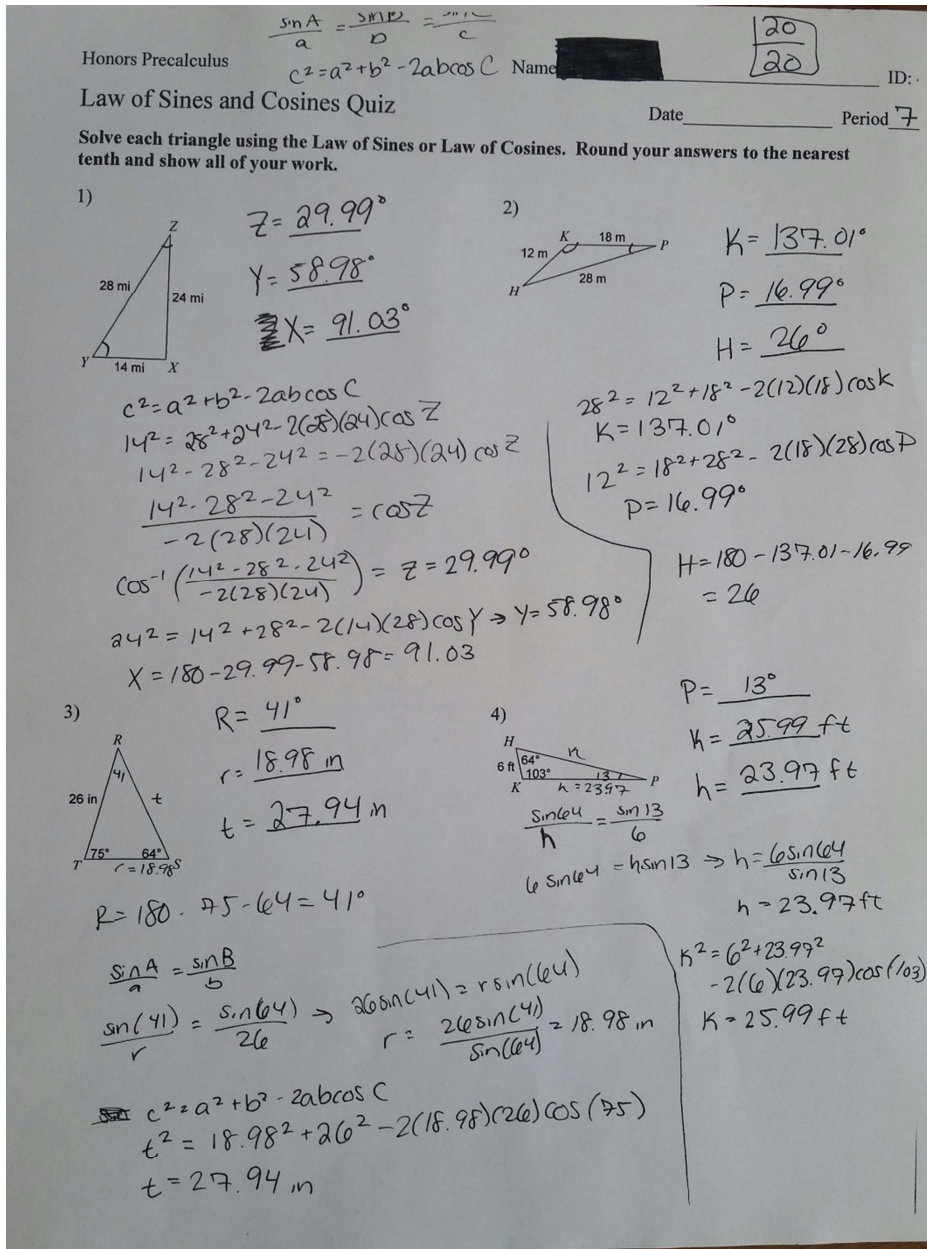 sin A/a = sin B/b = sin C/c
20/20
Honors Precalculus
c² = a² + b² - 2abcos C
Name
ID:
Law of Sines and Cosines Quiz
Date
Period 7
Solve each triangle using the Law of Sines or Law of Cosines. Round your answers to the nearest
tenth and show all of your work.
1)
Z
28 mi
24 mi
Y
14 mi
X
Z= 29.99°
Y= 58.98°
X= 91.03°
c²=a²+b²-2abcos C
14² = 28²+24²-2(28)(24)cos Z
14²-28²-24² = -2(28)(24) cos Z
14²-28²-24² / -2(28)(24) = cosZ
cos⁻¹ (14²-28²-24² / -2(28)(24)) = Z = 29.99°
24² = 14²+28²-2(14)(28)cos Y → Y=58.98°
X = 180-29.99-58.98= 91.03
2)
K
18 m
P
12 m
28 m
H
K= 137.01°
P= 16.99°
H= 26°
28² = 12²+18²-2(12)(18)cosK
K=137.01°
12² = 18²+28²-2(18)(28)cosP
P=16.99°
H=180-137.01-16.99
= 26
3)
R
41
26 in
t
75°
64°
T
r=18.98
S
R= 41°
r= 18.98 in
t= 27.94 in
R= 180-75-64= 41°
sinA/a = sinB/b
sin(41)/r = sin(64)/26 → 26sin(41)=rsin(64)
r= 26sin(41)/sin(64) = 18.98 in
c²=a²+b²-2abcos C
t² = 18.98²+26²-2(18.98)(26)cos(75)
t=27.94 in
4)
H
6 ft
64°
103°
13
K
P
h=23.97
P= 13°
K= 25.99 ft
h= 23.97 ft
sin64/h = sin 13/6
6 sin64 = hsin13 → h= 6sin64/sin13
h=23.97ft
K²=6²+23.97²
-2(6)(23.97)cos(103)
K=25.99ft